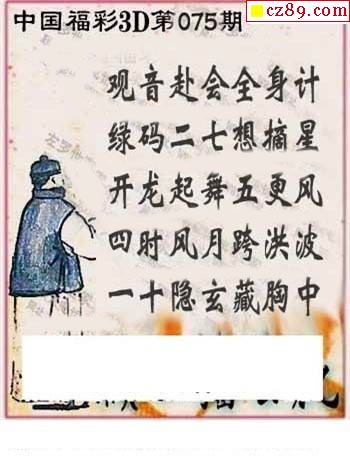 cz89.com
中国福彩3D第075期
观音赴会全身计
绿码二七想摘星
开龙起舞五更风
四时风月跨洪波
一十隐玄藏胸中